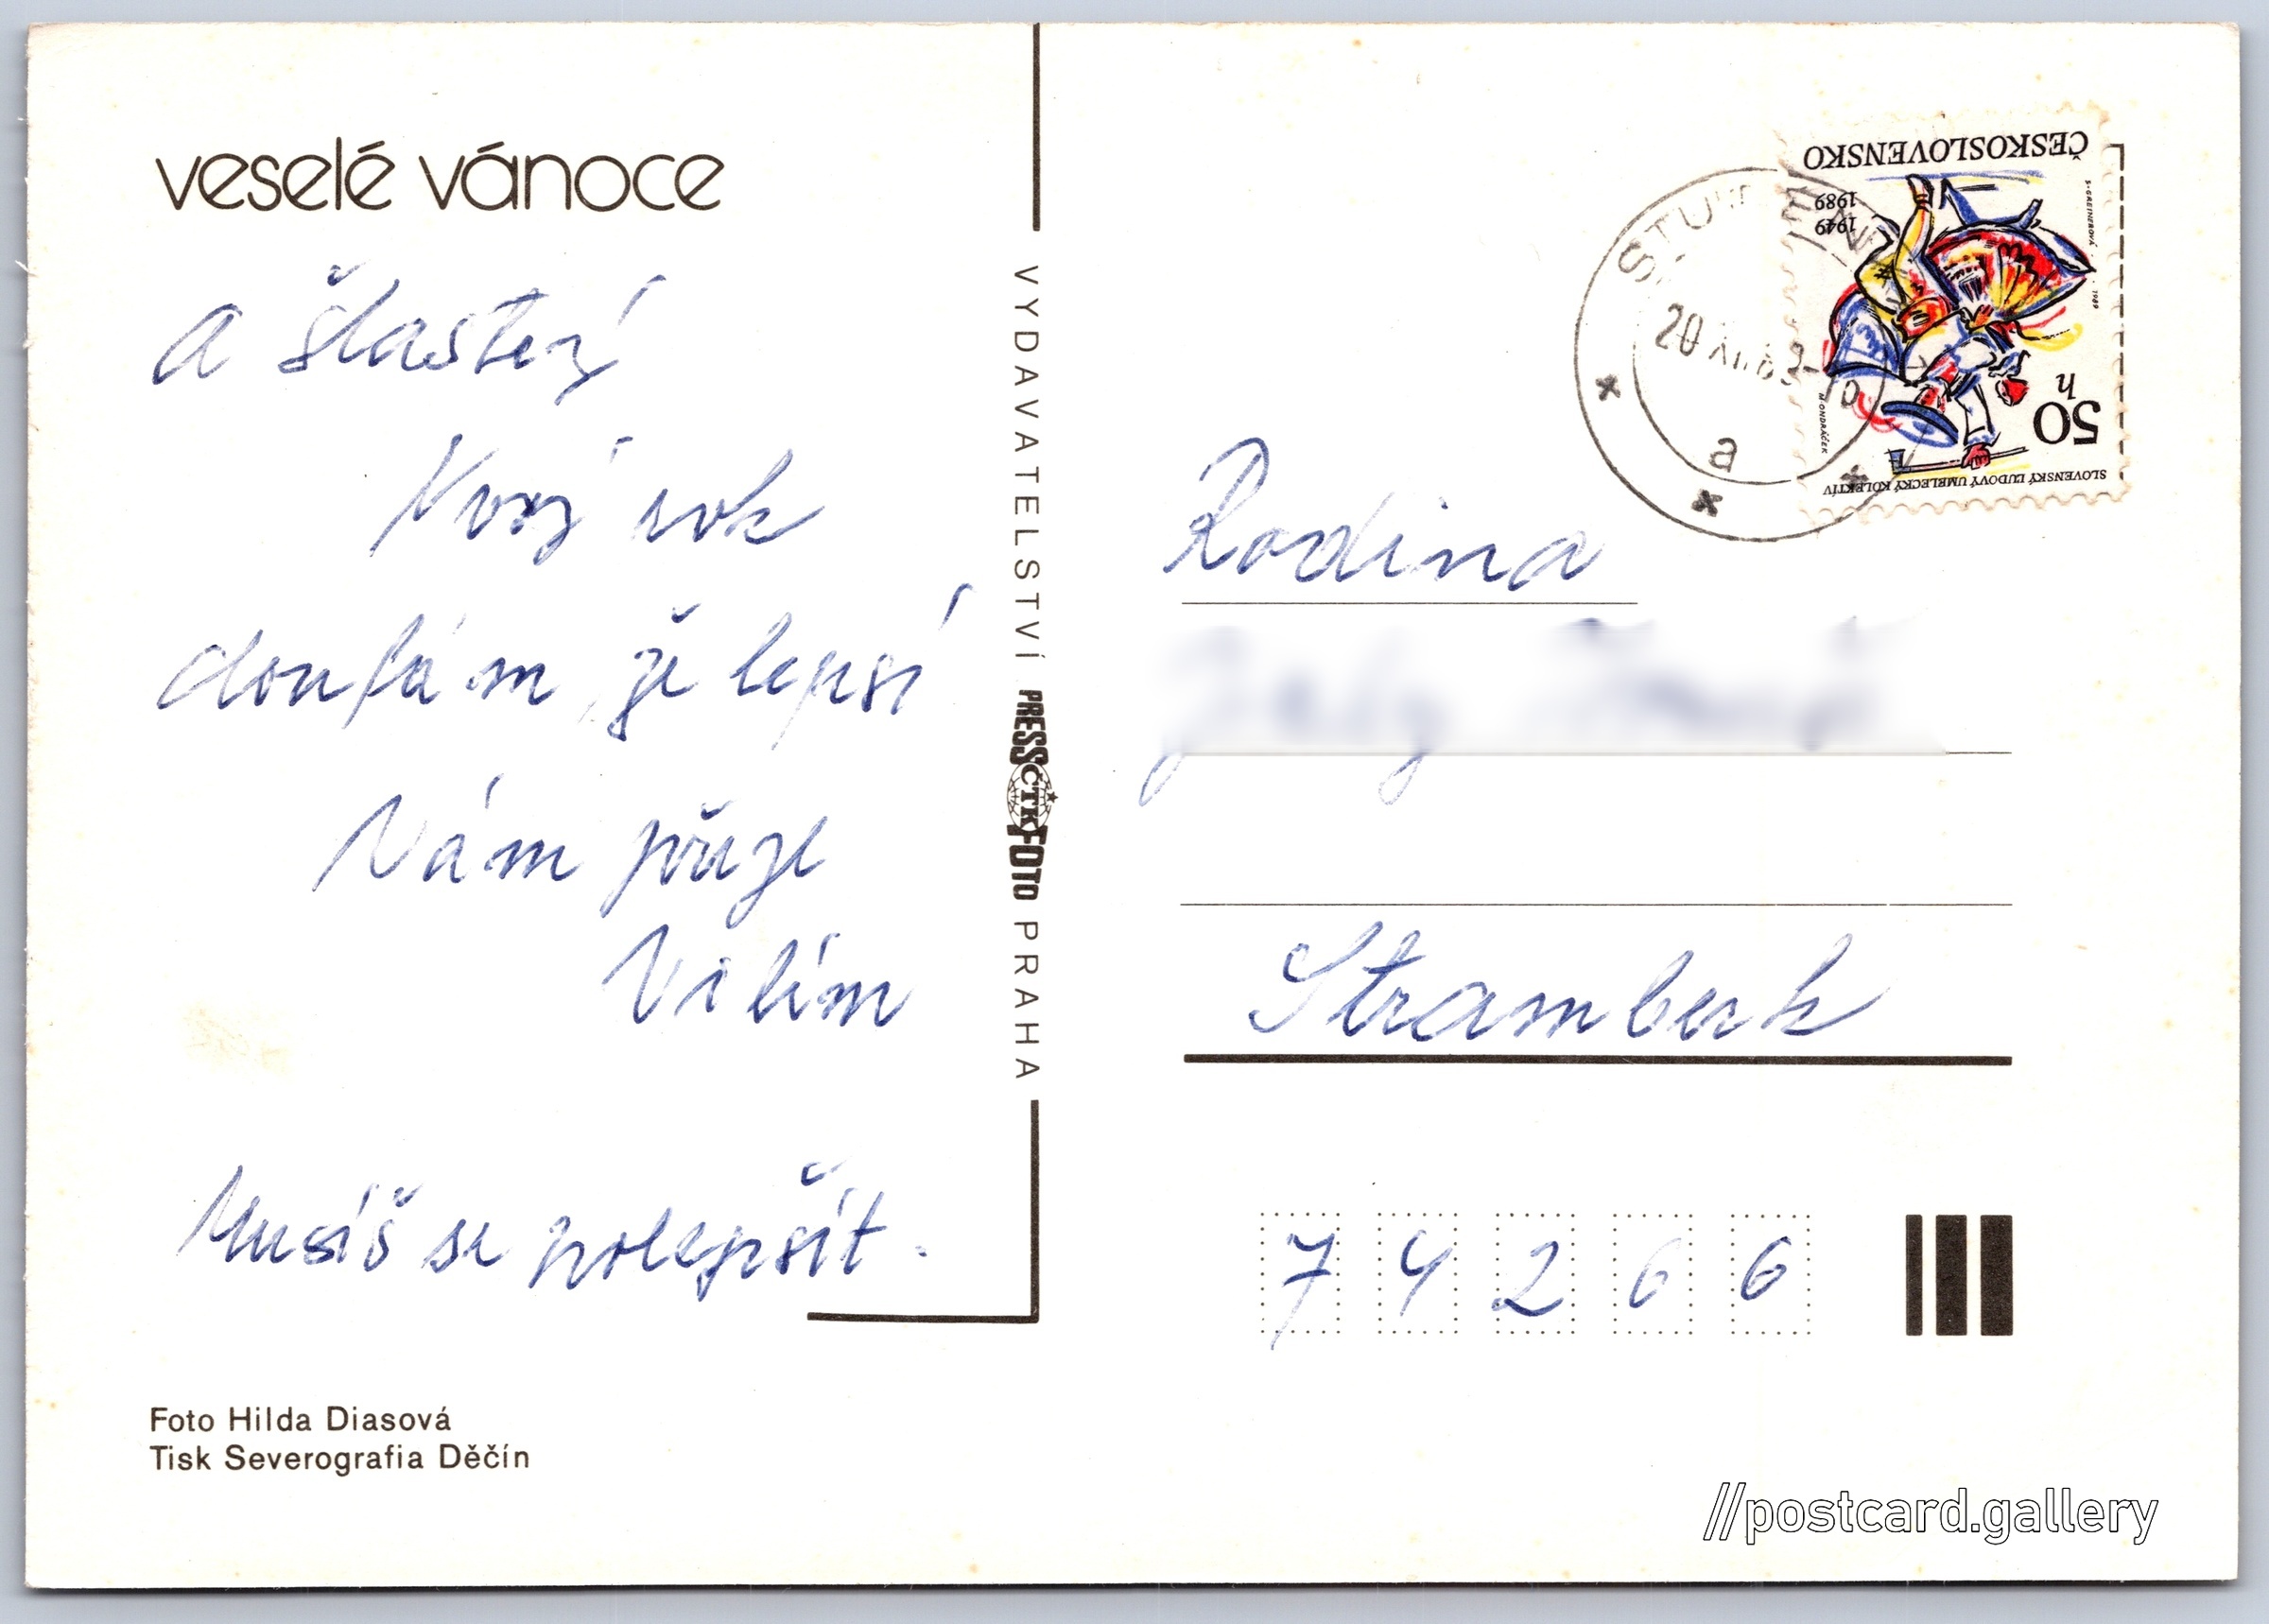 veselé vánoce
a šťastný
Nový rok
doufám, že lepší
Vám přeje
Vilím
Musíš se polepšit.
Foto Hilda Diasová
Tisk Severografia Děčín
VYDAVATELSTVÍ PRESSFOTO PRAHA
ČTK
ČESKOSLOVENSKO
1949
1989
S. GREINEROVÁ - 1989
M. ONDRÁČEK
50
h
SLOVENSKÝ ĽUDOVÝ UMELECKÝ KOLEKTÍV
20 XII 89-10
a
Rodina
Štramberk
7 4 2 6 6
//postcard.gallery